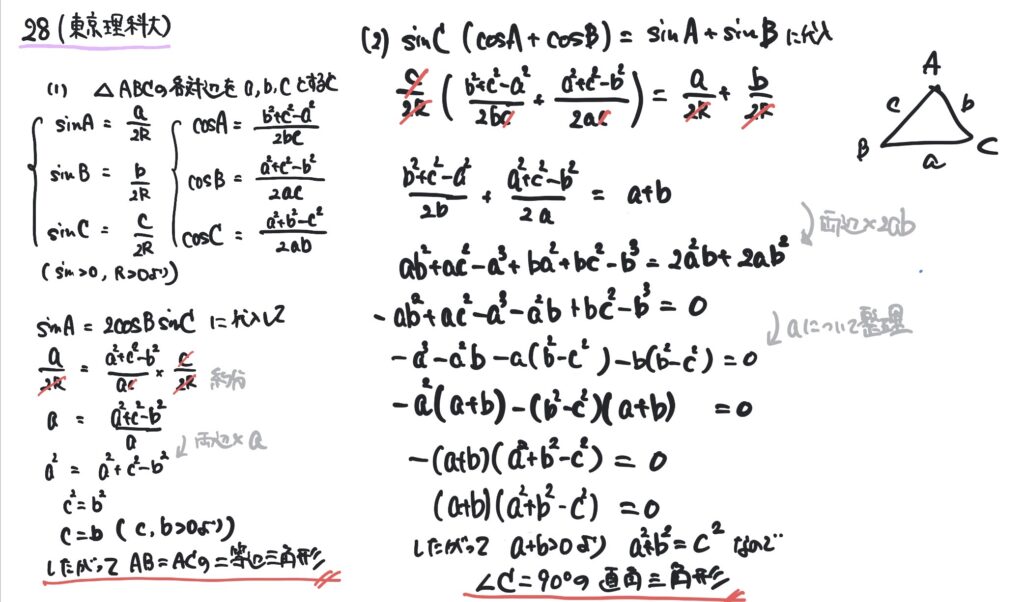 28 (東京理科大)
(1) △ABCの各対辺をa,b,cとすると
sinA = a/2R
sinB = b/2R
sinC = c/2R
cosA = (b²+c²-a²)/2bc
cosB = (a²+c²-b²)/2ac
cosC = (a²+b²-c²)/2ab
(sin>0, R>0より)
sinA = 2cosBsinC に代入して
a/2R = (a²+c²-b²)/ac × c/2R 約分
a = (a²+c²-b²)/a
両辺×a
a² = a²+c²-b²
c²=b²
c=b (c,b>0より)
したがって AB=ACの二等辺三角形
(2) sinC (cosA+cosB) = sinA+sinB に代入
c/2R ( (b²+c²-a²)/2bc + (a²+c²-b²)/2ac ) = a/2R + b/2R
(b²+c²-a²)/2b + (a²+c²-b²)/2a = a+b
両辺×2ab
ab²+ac²-a³+ba²+bc²-b³=2a²b+2ab²
-ab²+ac²-a³-a²b+bc²-b³=0
aについて整理
-a³-a²b-a(b²-c²)-b(b²-c²)=0
-a²(a+b)-(b²-c²)(a+b) =0
-(a+b)(a²+b²-c²) = 0
(a+b)(a²+b²-c²) = 0
したがって a+b>0より a²+b²=c² なので
∠C=90°の直角三角形
A
c
b
B
a
C